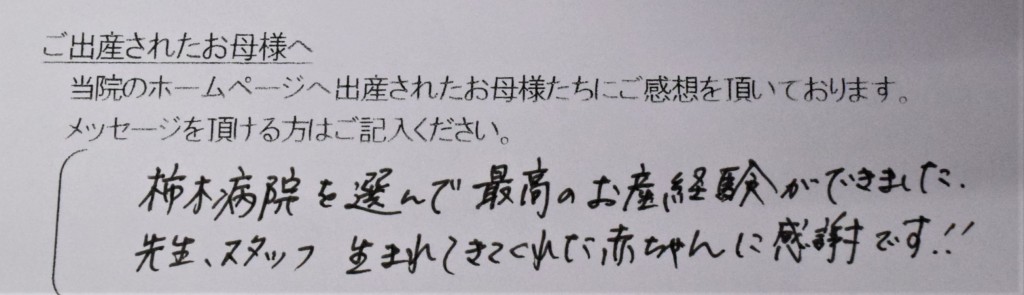 ご出産されたお母様へ
当院のホームページへ出産されたお母様たちにご感想を頂いております。
メッセージを頂ける方はご記入ください。
柿木病院を選んで最高のお産経験ができました.
先生、スタッフ 生まれてきてくれた赤ちゃんに感謝です!!